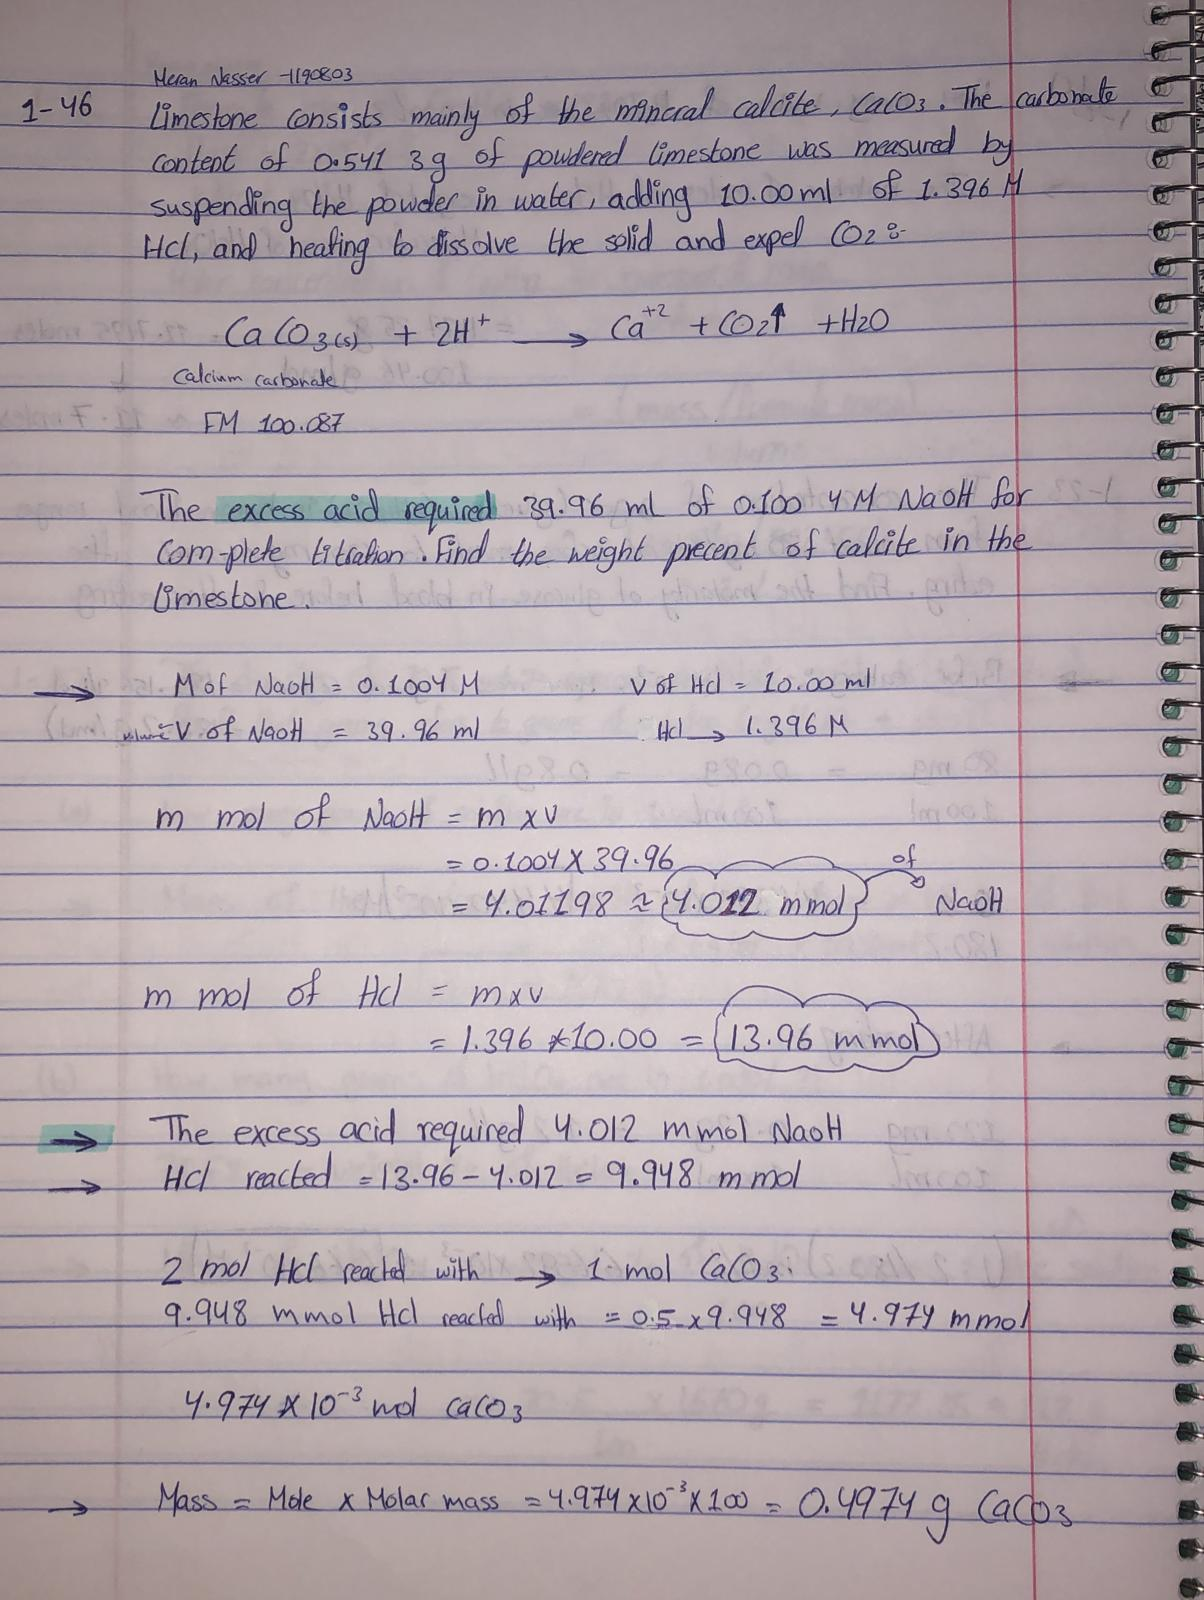 Meran Nasser -1190803
1-46 Limestone consists mainly of the mineral calcite, CaCO3. The carbonate
content of 0.541 3g of powdered limestone was measured by
suspending the powder in water, adding 10.00 ml of 1.396 M
HCl, and heating to dissolve the solid and expel CO2 :-
CaCO3(s) + 2H+ → Ca+2 + CO2↑ + H2O
Calcium carbonate
FM 100.087
The excess acid required 39.96 ml of 0.100 4 M NaOH for
Com-plete titration. Find the weight precent of calcite in the
limestone.
→ M of NaOH = 0.1004 M V of Hcl = 10.00 ml
volume = V of NaOH = 39.96 ml Hcl → 1.396 M
m mol of NaOH = m x v
= 0.1004 X 39.96
= 4.01198 ≈ 4.012 mmol of NaOH
m mol of Hcl = m x v
= 1.396 * 10.00 = 13.96 mmol
→ The excess acid required 4.012 mmol NaOH
→ HCl reacted = 13.96 - 4.012 = 9.948 mmol
2 mol Hcl reacted with → 1 mol CaCO3.
9.948 mmol HCl reacted with = 0.5 x 9.948 = 4.974 mmol
4.974 X 10-3 mol CaCO3
→ Mass = Mole x Molar mass = 4.974 x 10-3 X 100 = 0.4974 g CaCO3